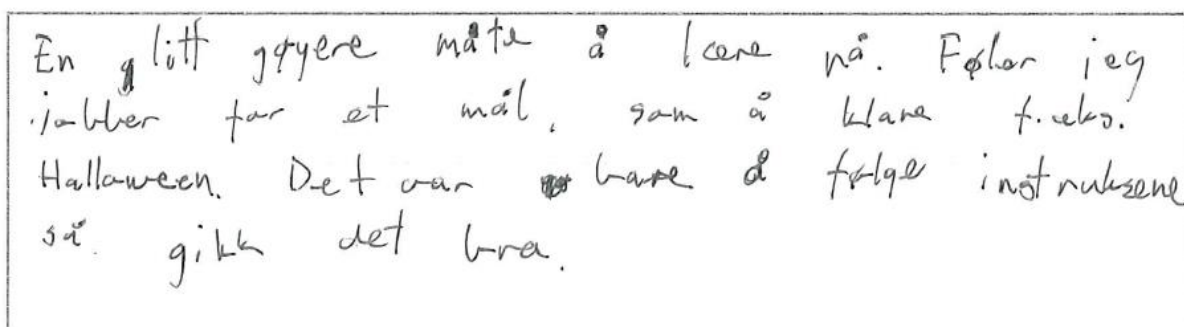 En litt gøyere måte å lære nå. Føler jeg
jobber for et mål, som å klare f.eks.
Halloween. Det var bare å følge instruksene
så gikk det bra.